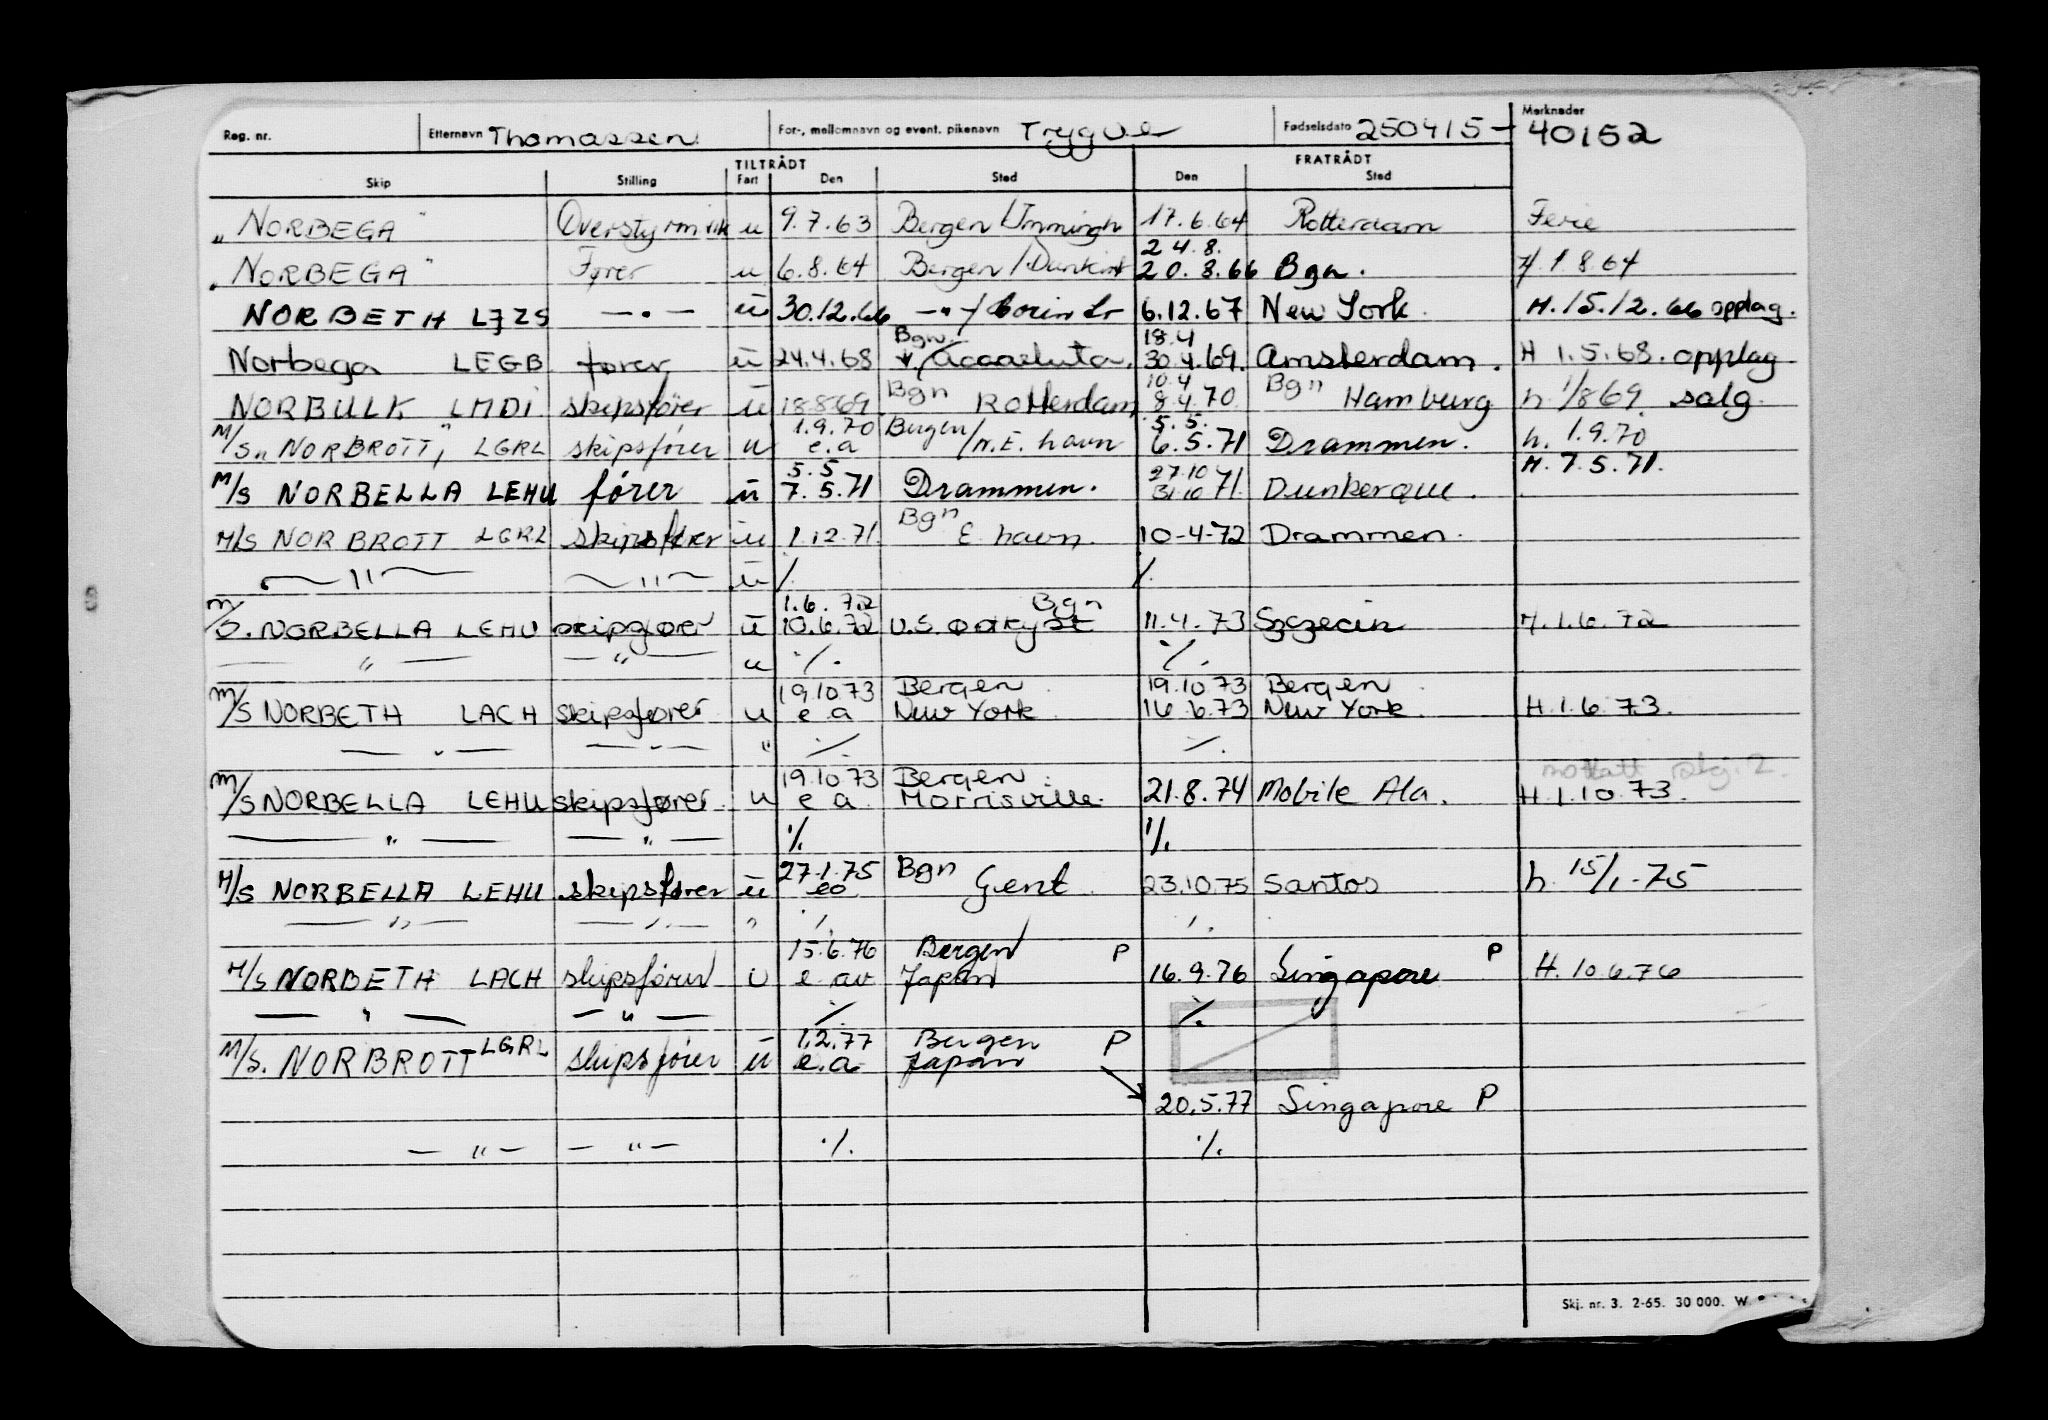 Reg. nr. Etternavn Thomassen For-, mellomnavn og event. pikenavn Trygve Fødselsdato 250415 - Merknader 40152
TILTRÅDT FRATRÅDT
Skip Stilling Fart Den Sted Den Sted
"NORBEGA" Overstyrm u 9.7.63 Bergen / Immingh 17.6.64 Rotterdam Ferie
24.8.
"NORBEGA" Fører u 6.8.64 Bergen / Dunkirk 20.8.66 Bgn. H 1 8 64
NORBETH LJZS — . — ü 30.12.66 — " — / 6.12.67 New York. H. 15.12.66 opplag.
Bgn. 18.4
Norbega LEGB fører ü 24.4.68 30.4.69. Amsterdam. H 1.5.68. opplag
Bgn 10.4 Bgn
NORBULK LMDI skipsfører ü 18869 Rotterdam 8.4.70 Hamburg h. 1/869. salg
1.9.70 Bergen 5.5.
M/S "NORBROTT" LGRL skipsfører u e.a / N.E. havn 6.5.71 Drammen. h. 1.9.70
5.5 27.10 H. 7.5.71.
M/S NORBELLA LEHU fører ü 7.5.71 Drammen. 31.10 71. Dunkerque.
Bgn
M/S NORBROTT LGRL skipsfører ü 1.12.71. E. havn. 10-4-72 Drammen.
— " — — " — ü /. /.
1.6.72 Bgn
M/S. NORBELLA LEHU skipsfører ü 10.6.72 U.S. østkyst 11.4.73 Szczecin H.1.6.72
— " — — " — u ./. ./.
19.10.73 Bergen 19.10.73 Bergen
M/S NORBETH LACH skipsfører u e a New York 16.6.73 New York. H.1.6.73.
— " — — " — " ./. ./.
19.10.73 Bergen. mottatt
M/S NORBELLA LEHU skipsfører. u e a. Morrisville. 21.8.74 Mobile Ala. H.1.10.73.
— " — — " — ./. ./.
27.1.75 Bgn
M/S NORBELLA LEHU skipsfører ü ea Gent 23.10.75 Santos h. 15/1-75
— " — — " — " ./. ./.
15.6.76 Bergen P P
M/S NORBETH LACH skipsfører u e av Japan 16.9.76 Singapore H. 10.6.76
— " — — " — ./. ./.
1.2.77 Bergen P
M/S. NORBROTT LGRL skipsfører ü e.a Japan
20.5.77 Singapore P
— " — — " — ./. ./.
Skj. nr. 3. 2-65. 30 000. W